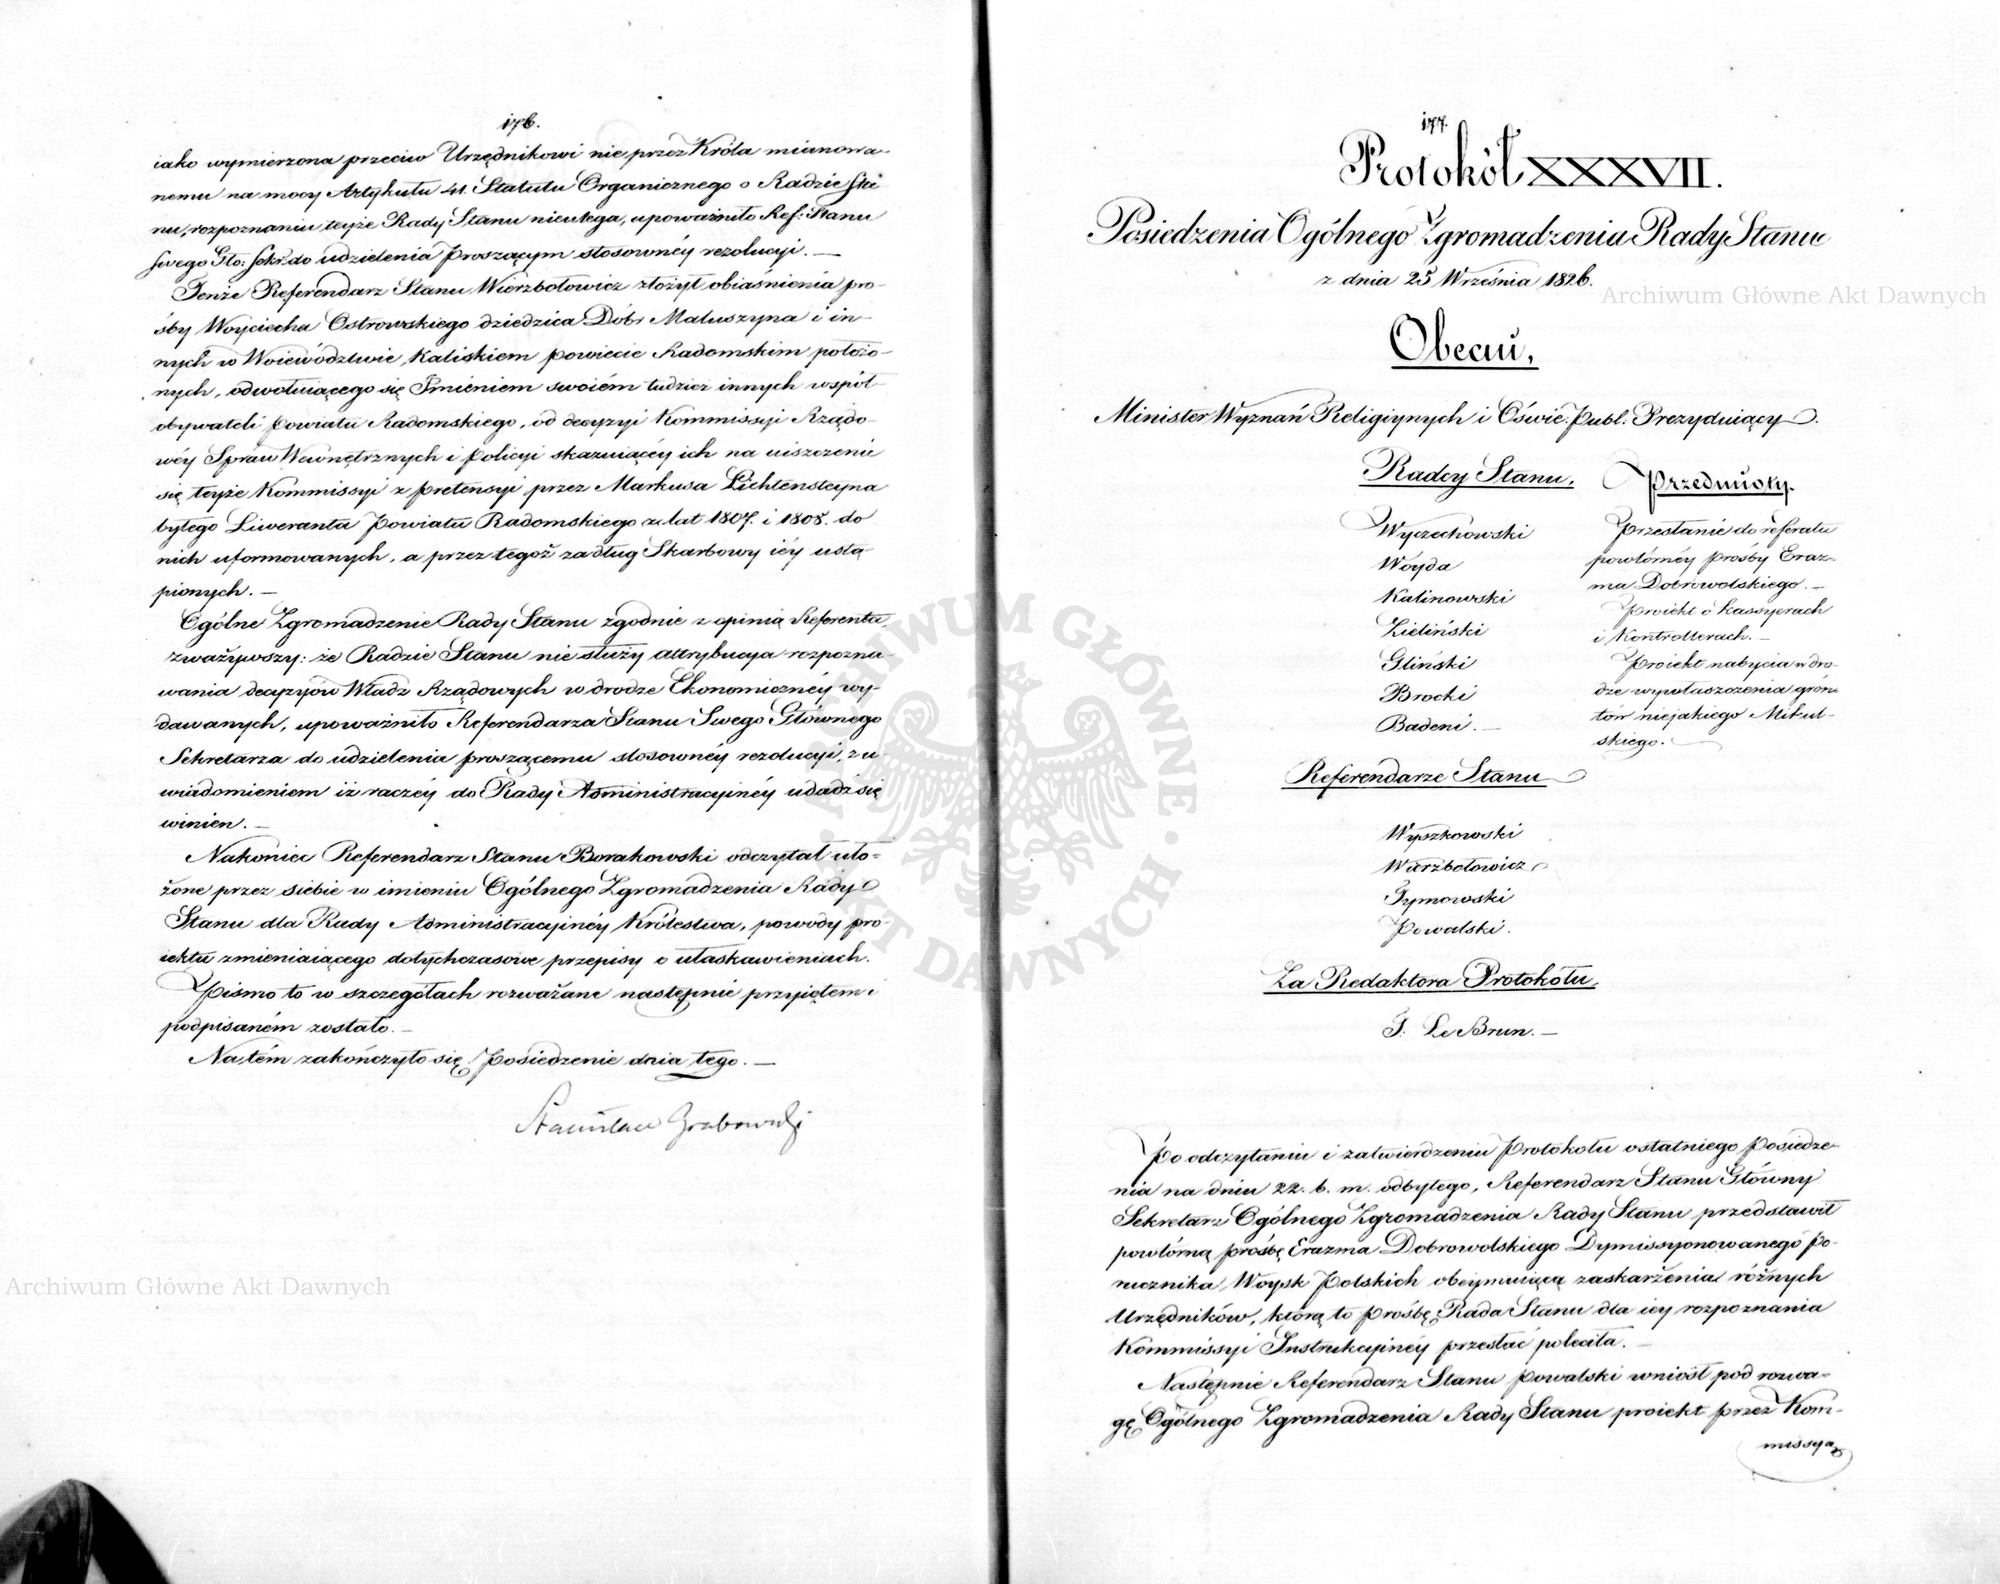 176.
iako wymierzona przeciw Urzędnikowi nie przez Króla mianowa-
nemu na mocy Artykułu 41. Statutu Organicznego o Radzie Sta-
nu, rozpoznaniu teyże Rady Stanu nieulega, upoważniło Ref: Stanu
Swego Gło: Sekr. do udzielenia proszącym stosownéy rezolucyi. —
Tenże Referendarz Stanu Wierzbołowicz złożył obiaśnienia pro-
śby Woyciecha Ostrowskiego dziedzica Dóbr Maluszyna i in-
nych w Woiewództwie Kaliskiem powiecie Radomskim położo-
nych, odwołuiącego się Jmieniem swoiém tudzież innych współ-
obywateli powiatu Radomskiego, od decyzyi Kommissyi Rządo-
wéy Spraw Wewnętrznych i Policyi skazuiącéy ich na uiszczenie
się teyże Kommissyi z pretensyi przez Markusa Lichtensteyna
byłego Liweranta Powiatu Radomskiego z lat 1807. i 1808. do
nich uformowanych, a przez tegoż za dług Skarbowy iéy ustą-
pionych. —
Ogólne Zgromadzenie Rady Stanu zgodnie z opinią Referenta
zważywszy: że Radzie Stanu nie służy attrybucya rozpozna-
wania decyzyów Władz Rządowych w drodze Ekonomicznéy wy-
dawanych, upoważniło Referendarza Stanu Swego Głównego
Sekretarza do udzielenia proszącemu stosownéy rezolucyi, z u-
wiadomieniem iż raczéy do Rady Administracyinéy udadź się
winien. —
Nakoniec Referendarz Stanu Borakowski odczytał uło-
żone przez siebie w imieniu Ogólnego Zgromadzenia Rady
Stanu dla Rady Administracyinéy Królestwa, powody pro-
iektu zmieniaiącego dotychczasowe przepisy o ułaskawieniach.
Pismo to w szczegółach rozważane następnie przyiętem i
podpisaném zostało. —
Na tém zakończyło się Posiedzenie dnia tego. —
Stanisław Grabowski
177.
Protokół XXXVII.
Posiedzenia Ogólnego Zgromadzenia Rady Stanu
z dnia 25 Września 1826.
Obecni,
Minister Wyznań Religiynych i Oświe. Publ. Prezyduiący.
Radcy Stanu,
Wyczechowski
Woyda
Kalinowski
Zieliński
Gliński
Brocki
Badeni. —
Przedmioty.
Przesłanie do referatu
powtórnéy prośby Eraz-
ma Dobrowolskiego. —
Proiekt o kassyerach
i Kontrollerach. —
Proiekt nabycia w dro-
dze wywłaszczenia grón-
tów niejakiego Mikul-
skiego. —
Referendarze Stanu
Wyszkowski
Wierzbołowicz
Tymowski
Powalski.
Za Redaktora Protokołu,
J. Le Brun. —
Po odczytaniu i zatwierdzeniu Protokołu ostatniego Posiedze-
nia na dniu 22. b. m. odbytego, Referendarz Stanu Główny
Sekretarz Ogólnego Zgromadzenia Rady Stanu przedstawił
powtórną prośbę Erazma Dobrowolskiego Dymissyonowanego Po-
rucznika Woysk Polskich obeymuiącą zaskarżenia różnych
Urzędników, którą to prośbę Rada Stanu dla iey rozpoznania
Kommissyi Instrukcyinéy przesłać poleciła. —
Następnie Referendarz Stanu Powalski wniósł pod rozwa-
gę Ogólnego Zgromadzenia Rady Stanu proiekt przez Kom-
missyą
Archiwum Główne Akt Dawnych
Archiwum Główne Akt Dawnych
ARCHIWUM GŁÓWNE AKT DAWNYCH